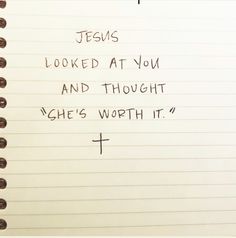 JESUS
LOOKED AT YOU
AND THOUGHT
"SHE'S WORTH IT."